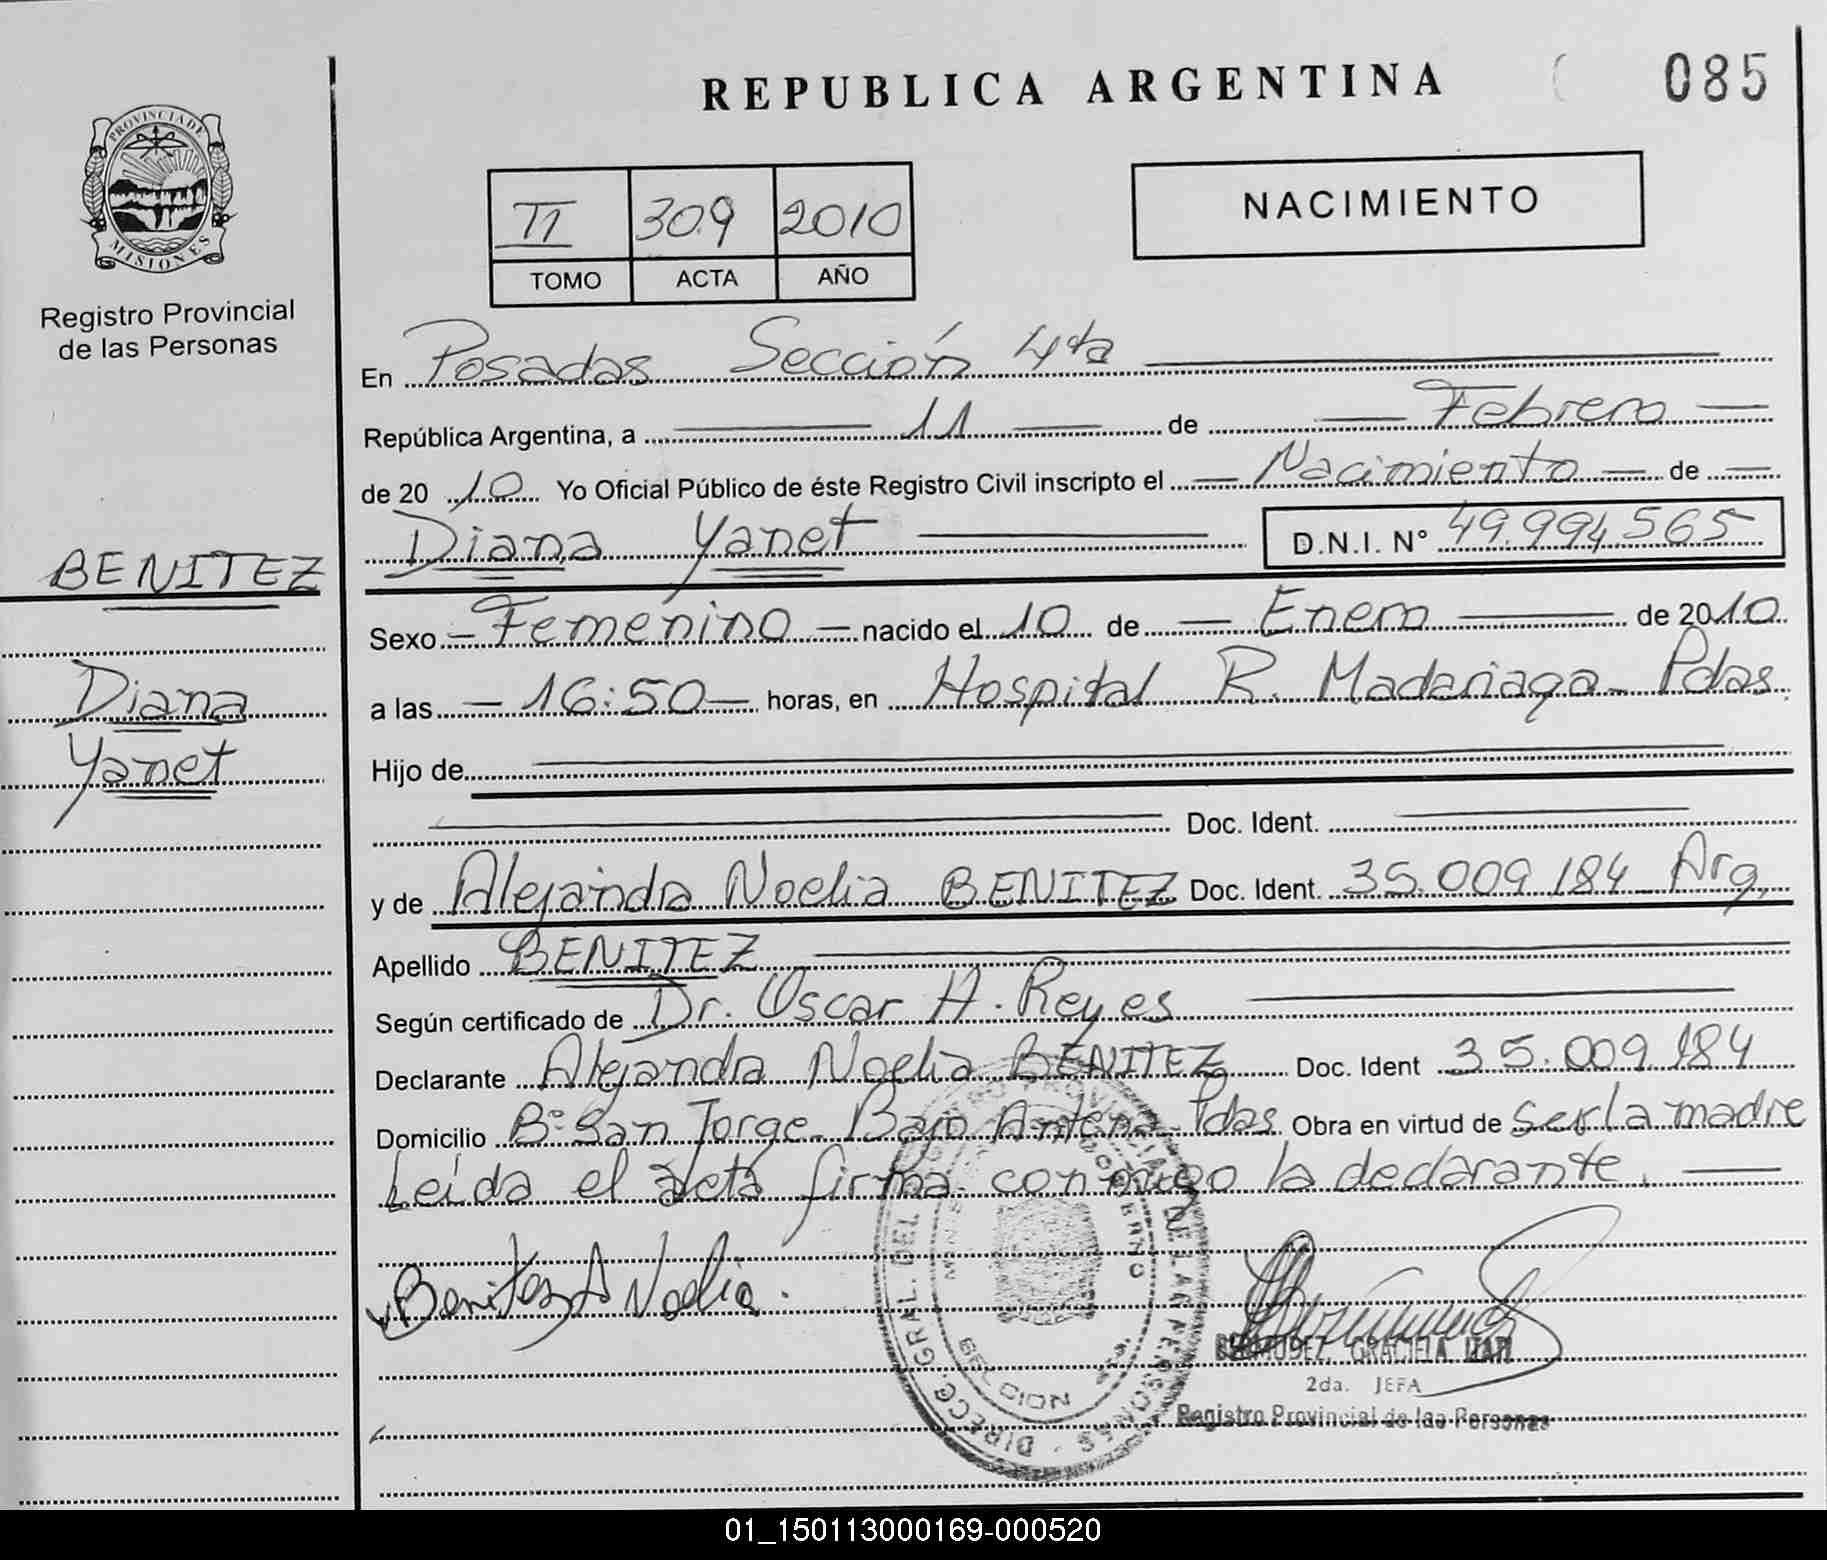 REPUBLICA ARGENTINA
085
PROVINCIA DE
MISIONES
Registro Provincial
de las Personas
II 309 2010
TOMO ACTA AÑO
NACIMIENTO
En Posadas Sección 4ta
República Argentina, a 11 de Febrero
de 2010 Yo Oficial Público de éste Registro Civil inscripto el Nacimiento de
Diana Yanet D.N.I. N° 49.994.565
BENITEZ
Diana
Yanet
Sexo Femenino nacido el 10 de Enero de 2010
a las 16:50 horas, en Hospital R. Madariaga - Pdas.
Hijo de
Doc. Ident.
y de Alejandra Noelia BENITEZ Doc. Ident. 35.009.184 Arg.
Apellido BENITEZ
Según certificado de Dr. Oscar A. Reyes
Declarante Alejandra Noelia BENITEZ Doc. Ident 35.009.184
Domicilio B° San Jorge - Bajo Antena - Pdas. Obra en virtud de ser la madre
Leída el acta firma conmigo la declarante.
Benitez A Noelia.
DIRECC. GRAL. DEL REGISTRO PROVINCIAL DE LAS PERSONAS
BERMUDEZ, GRACIELA ITATI
2da. JEFA
Registro Provincial de las Personas
01_150113000169-000520